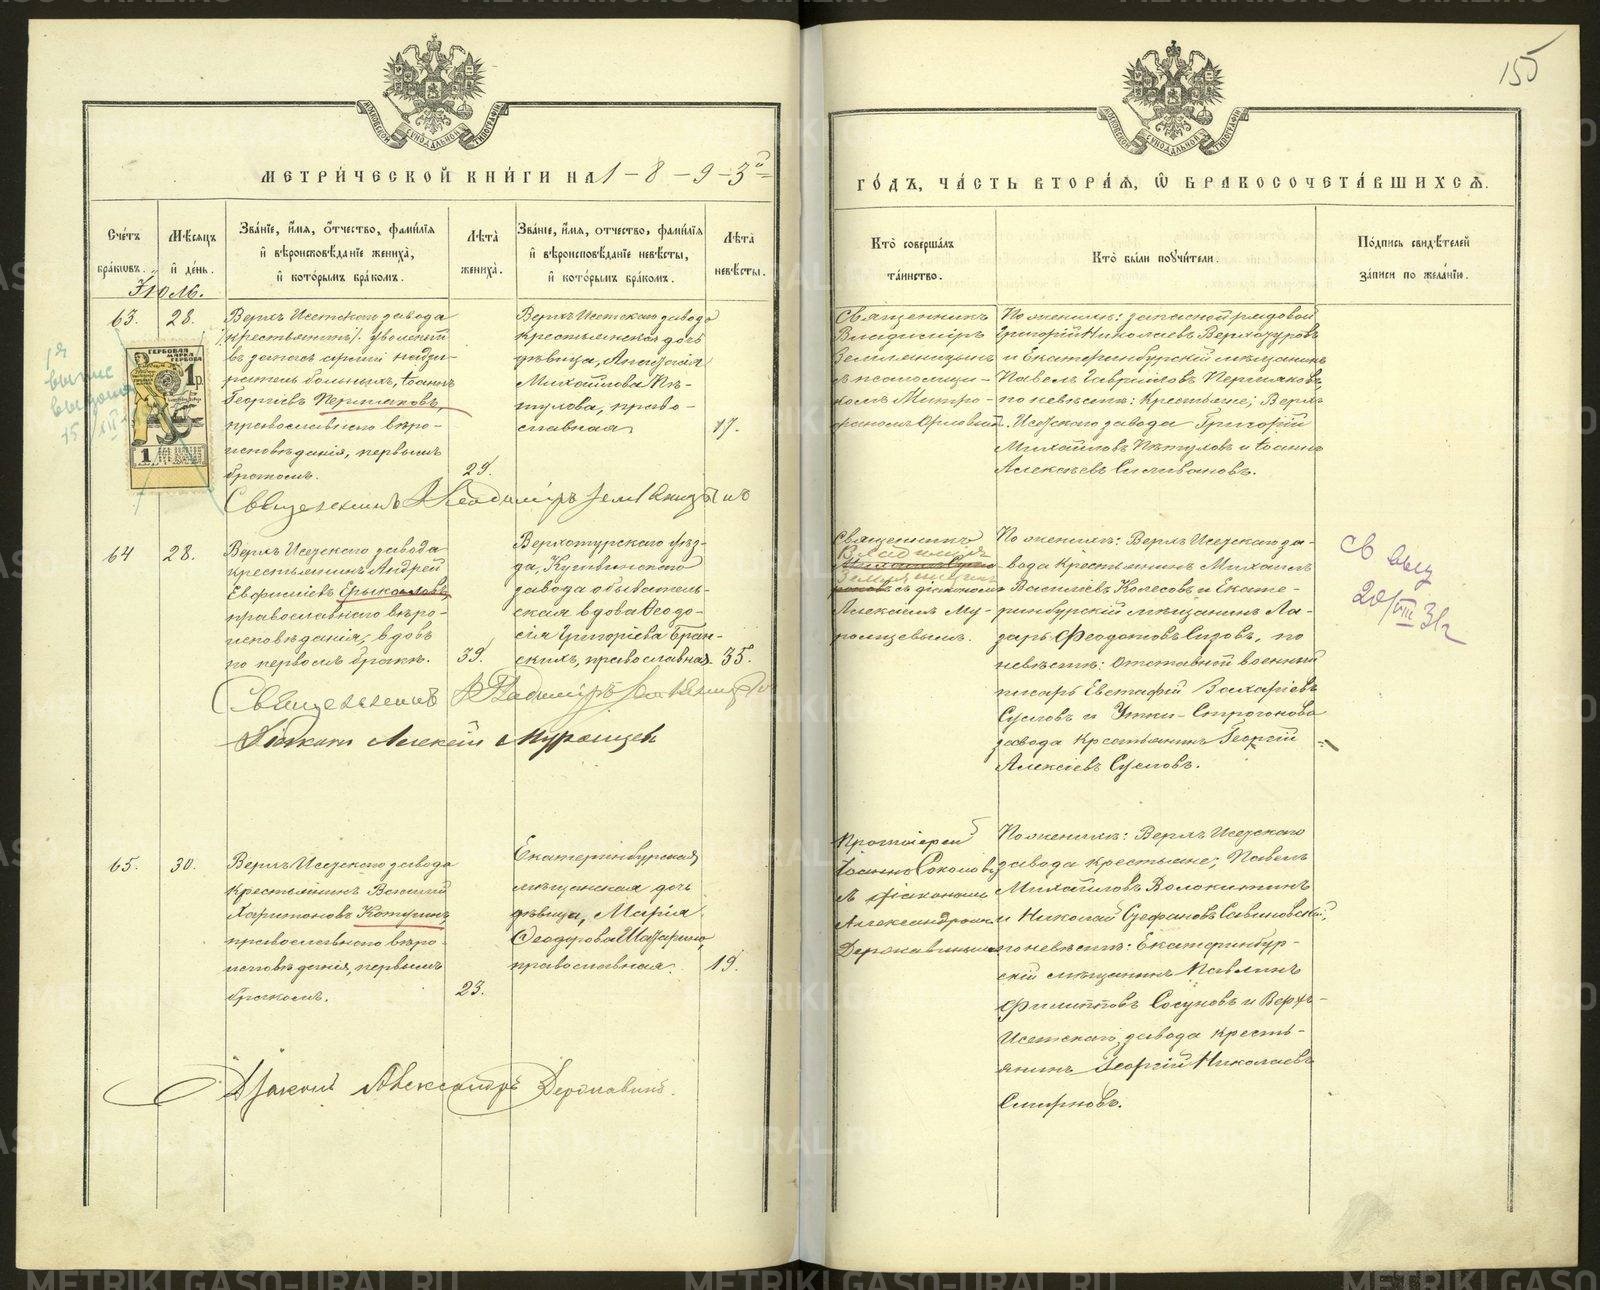 155
МЕТРИ́ЧЕСКОЙ КНИ́ГИ НА 1-8-9-3й
ГО́ДЪ, ЧА́СТЬ ВТОРА́Я, Ѽ БРАКОСОЧЕТА́ВШИХСЯ.
Сче́тъ бра́кѡвъ.
Мѣ́сяцъ и҆ де́нь.
Зва́нїе, и҆́мя, ѻ҆́тчество, фами́лїя и҆ вѣроисповѣ́данїе жениха̀, и҆ кото́рымъ бра́комъ.
Лѣ́та жениха̀.
Зва́нїе, и҆́мя, ѻ҆́тчество, фами́лїя и҆ вѣроисповѣ́данїе невѣ́сты, и҆ кото́рымъ бра́комъ.
Лѣ́та невѣ́сты.
Кто̀ соверша́лъ та́инство.
Кто̀ бы́ли поручи́тели.
По́дпись свидѣ́телей за́писи по жела́нїю.
Іюль.
63.
28.
Верхъ Исетскаго завода
(крестьянинъ) уволенный
въ запасъ арміи надзи-
ратель больныхъ, Іоаннъ
Георгіевъ Пермяковъ,
православнаго вѣро-
исповѣданія, первымъ
бракомъ.
29.
Верхъ Исетскаго завода
крестьянская дочь
дѣвица, Анастасія
Михайлова Пѣ-
тухова, право-
славная
17.
Священникъ
Владиміръ
Земляницынъ
съ псаломщи-
комъ Митро-
фаномъ Орловымъ.
По женихѣ: запасной рядовой
Григорій Николаевъ
и Екатеринбургскій мѣщанинъ
Павелъ Гавриловъ Пермяковъ,
по невѣстѣ: крестьяне; Верхъ
Исетскаго завода Григорій
Михайловъ Пѣтуховъ и Іоаннъ
Алексѣевъ Силивановъ.
Священникъ Владиміръ Земляницынъ
64
28.
Верхъ Исетскаго завода
крестьянинъ Андрей
Евфиміевъ Ерыкаловъ
православнаго вѣро-
исповѣданія, вдовъ
по первомъ бракѣ.
39.
Верхотурскаго уѣз-
да, Кушвинскаго
завода обыватель-
ская вдова Ѳеодо-
сія Григоріева Бран-
скихъ, православная.
35.
Священникъ
Владиміръ
Земляницынъ
съ діакономъ
Алексіемъ Му-
ромцевымъ.
По женихѣ: Верхъ Исетскаго за-
вода крестьянинъ Михаилъ
Василіевъ Колесовъ и Екате-
ринбургскій мѣщанинъ Ла-
зарь Ѳеодотовъ Сизовъ, по
невѣстѣ: отставной военный
писарь Евстафій Захаріевъ
Сусловъ и Утки-Строгонова
завода крестьянинъ Георгій
Алексіевъ Сусловъ.
Священникъ Владиміръ Земляницынъ
Діаконъ Алексій Муромцевъ
65.
30.
Верхъ Исетскаго завода
крестьянинъ Василій
Харитоновъ Котугинъ
православнаго вѣро-
исповѣданія, первымъ
бракомъ.
23.
Екатеринбургская
мѣщанская дочь
дѣвица, Марія
Ѳеодорова
православная.
19.
Протоіерей
Іоаннъ Соколовъ
съ діакономъ
Александромъ
Державинымъ
По женихѣ: Верхъ Исетскаго
завода крестьяне; Павелъ
Михайловъ Волокитинъ
и Николай Стефановъ Савиновскій;
по невѣстѣ: Екатеринбург-
скій мѣщанинъ Павлинъ
Филипповъ Сосуновъ и Верхъ-
Исетскаго завода кресть-
янинъ Георгій Николаевъ
Смирновъ.
Діаконъ Александръ Державинъ.
ГЕРБОВАЯ МАРКА
1 р.
св выд
20/VIII 31г
METRIKI.GASO-URAL.RU